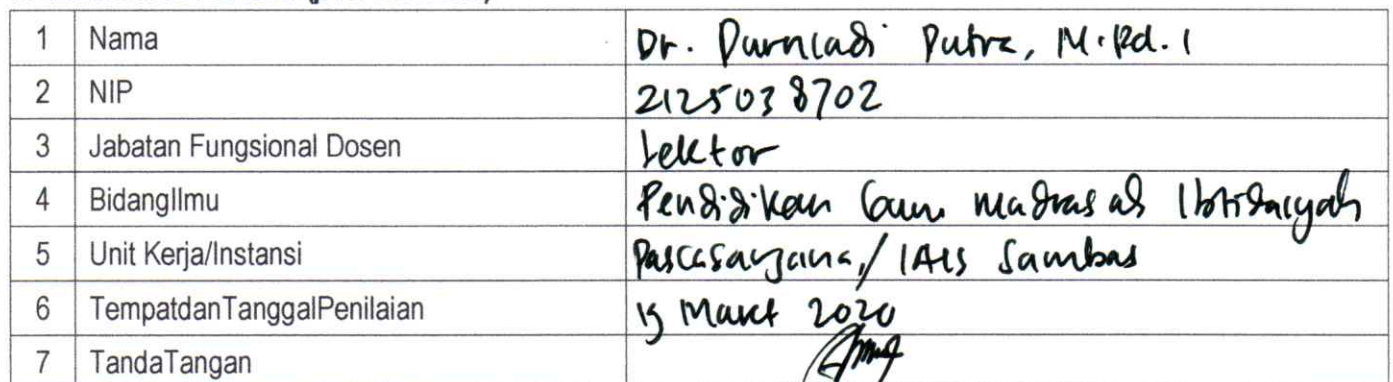 1 Nama Dr. Purniadi Putra, M.Pd.I
2 NIP 2125038702
3 Jabatan Fungsional Dosen Lektor
4 BidangIlmu Pendidikan Guru Madrasah Ibtidaiyah
5 Unit Kerja/Instansi Pascasarjana / IAIS Sambas
6 TempatdanTanggalPenilaian Maret 2020
7 TandaTangan